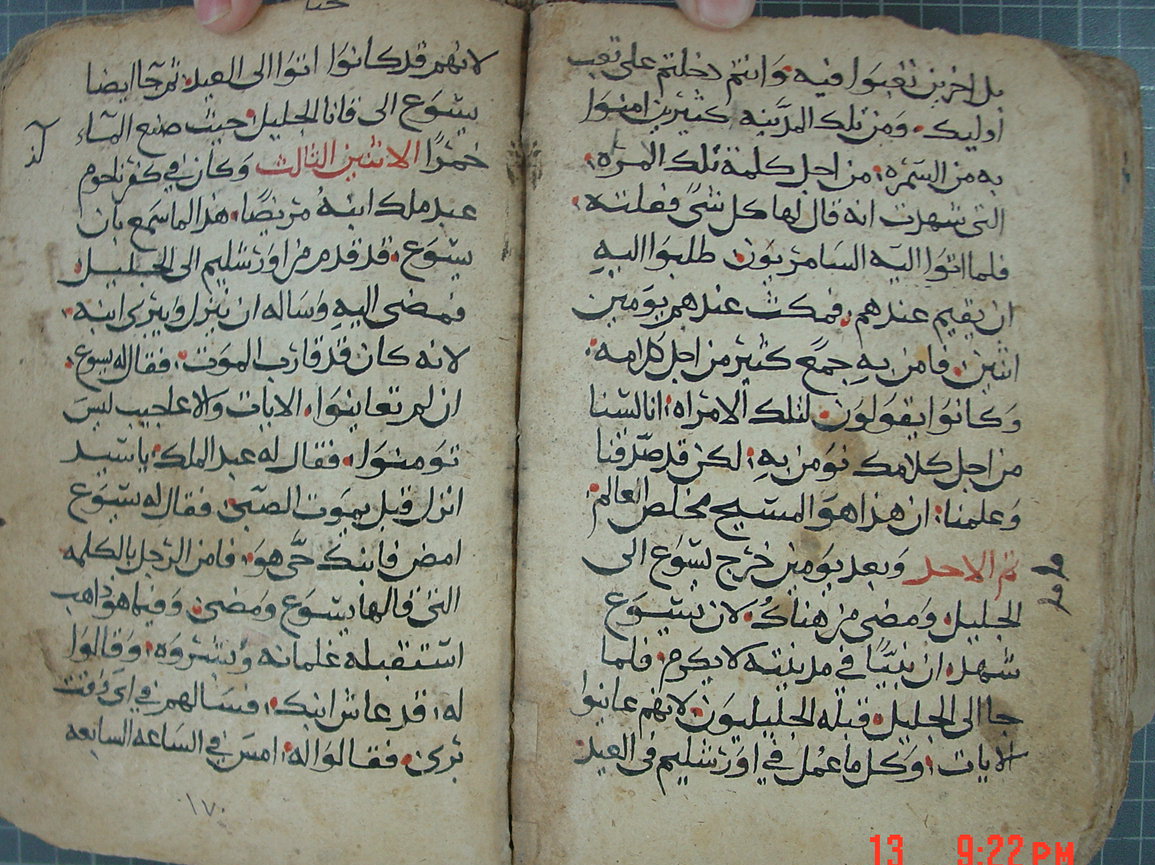 بل اخرين تعبوا فيه، وانتم دخلتم على تعب
اوليك. ومن تلك المدينه كثيرين امنوا
به من السمره، من اجل كلمة تلك المره،
التى شهدت انه قال لها كل شى فعلته،
فلما اتوا اليه السامريون طلبوا اليه
ان يقيم عندهم، فمكث عندهم يومين
اثنين. فامن به جمع كثير من اجل كلامه،
وكانوا يقولون لتلك الامراه، اننا لسنا
من اجل كلامك نومن به، لكن قد صدقنا
وعلمنا، ان هذا هو المسيح مخلص العالم
تم الاحد وبعد يومين خرج يسوع الى
الجليل، ومضى من هناك، لان يسوع
شهد، ان نبيًا في مدينته لا يكرم، فلما
جا الى الجليل، قبله الجليليون، لانهم عاينوا
الايات، وكل ما عمل في اورشليم فى العيد
لانهم قد كانوا اتوا الى العيد، ثم جا ايضا
يسوع الى قانا الجليل، حيث صنع الماء
خمرًا الاثنين الثالث وكان في كفرناحوم
عبد ملك ابنه مريضًا، هذا لما سمع بان
يسوع، قد قدم من اورشليم الى الجليل
فمضى اليه وساله ان ينزل ويبرى ابنه،
لانه كان قد قارب الموت، فقال له يسوع،
ان لم تعاينوا، الايات والاعاجيب ليس
تومنوا، فقال له عبد الملك، يا سيد
انزل قبل يموت الصبى، فقال له يسوع
امض فابنك حى هو، فامن الرجل بالكلمه
التى قالها يسوع ومضى، وفيما هو ذاهب
استقبله غلمانه وبشروه، وقالوا
له، قد عاش ابنك، فسالهم في اى وقت
برى، فقالوا له، امس في الساعه السابعه
١٧٠
13 9:22 PM